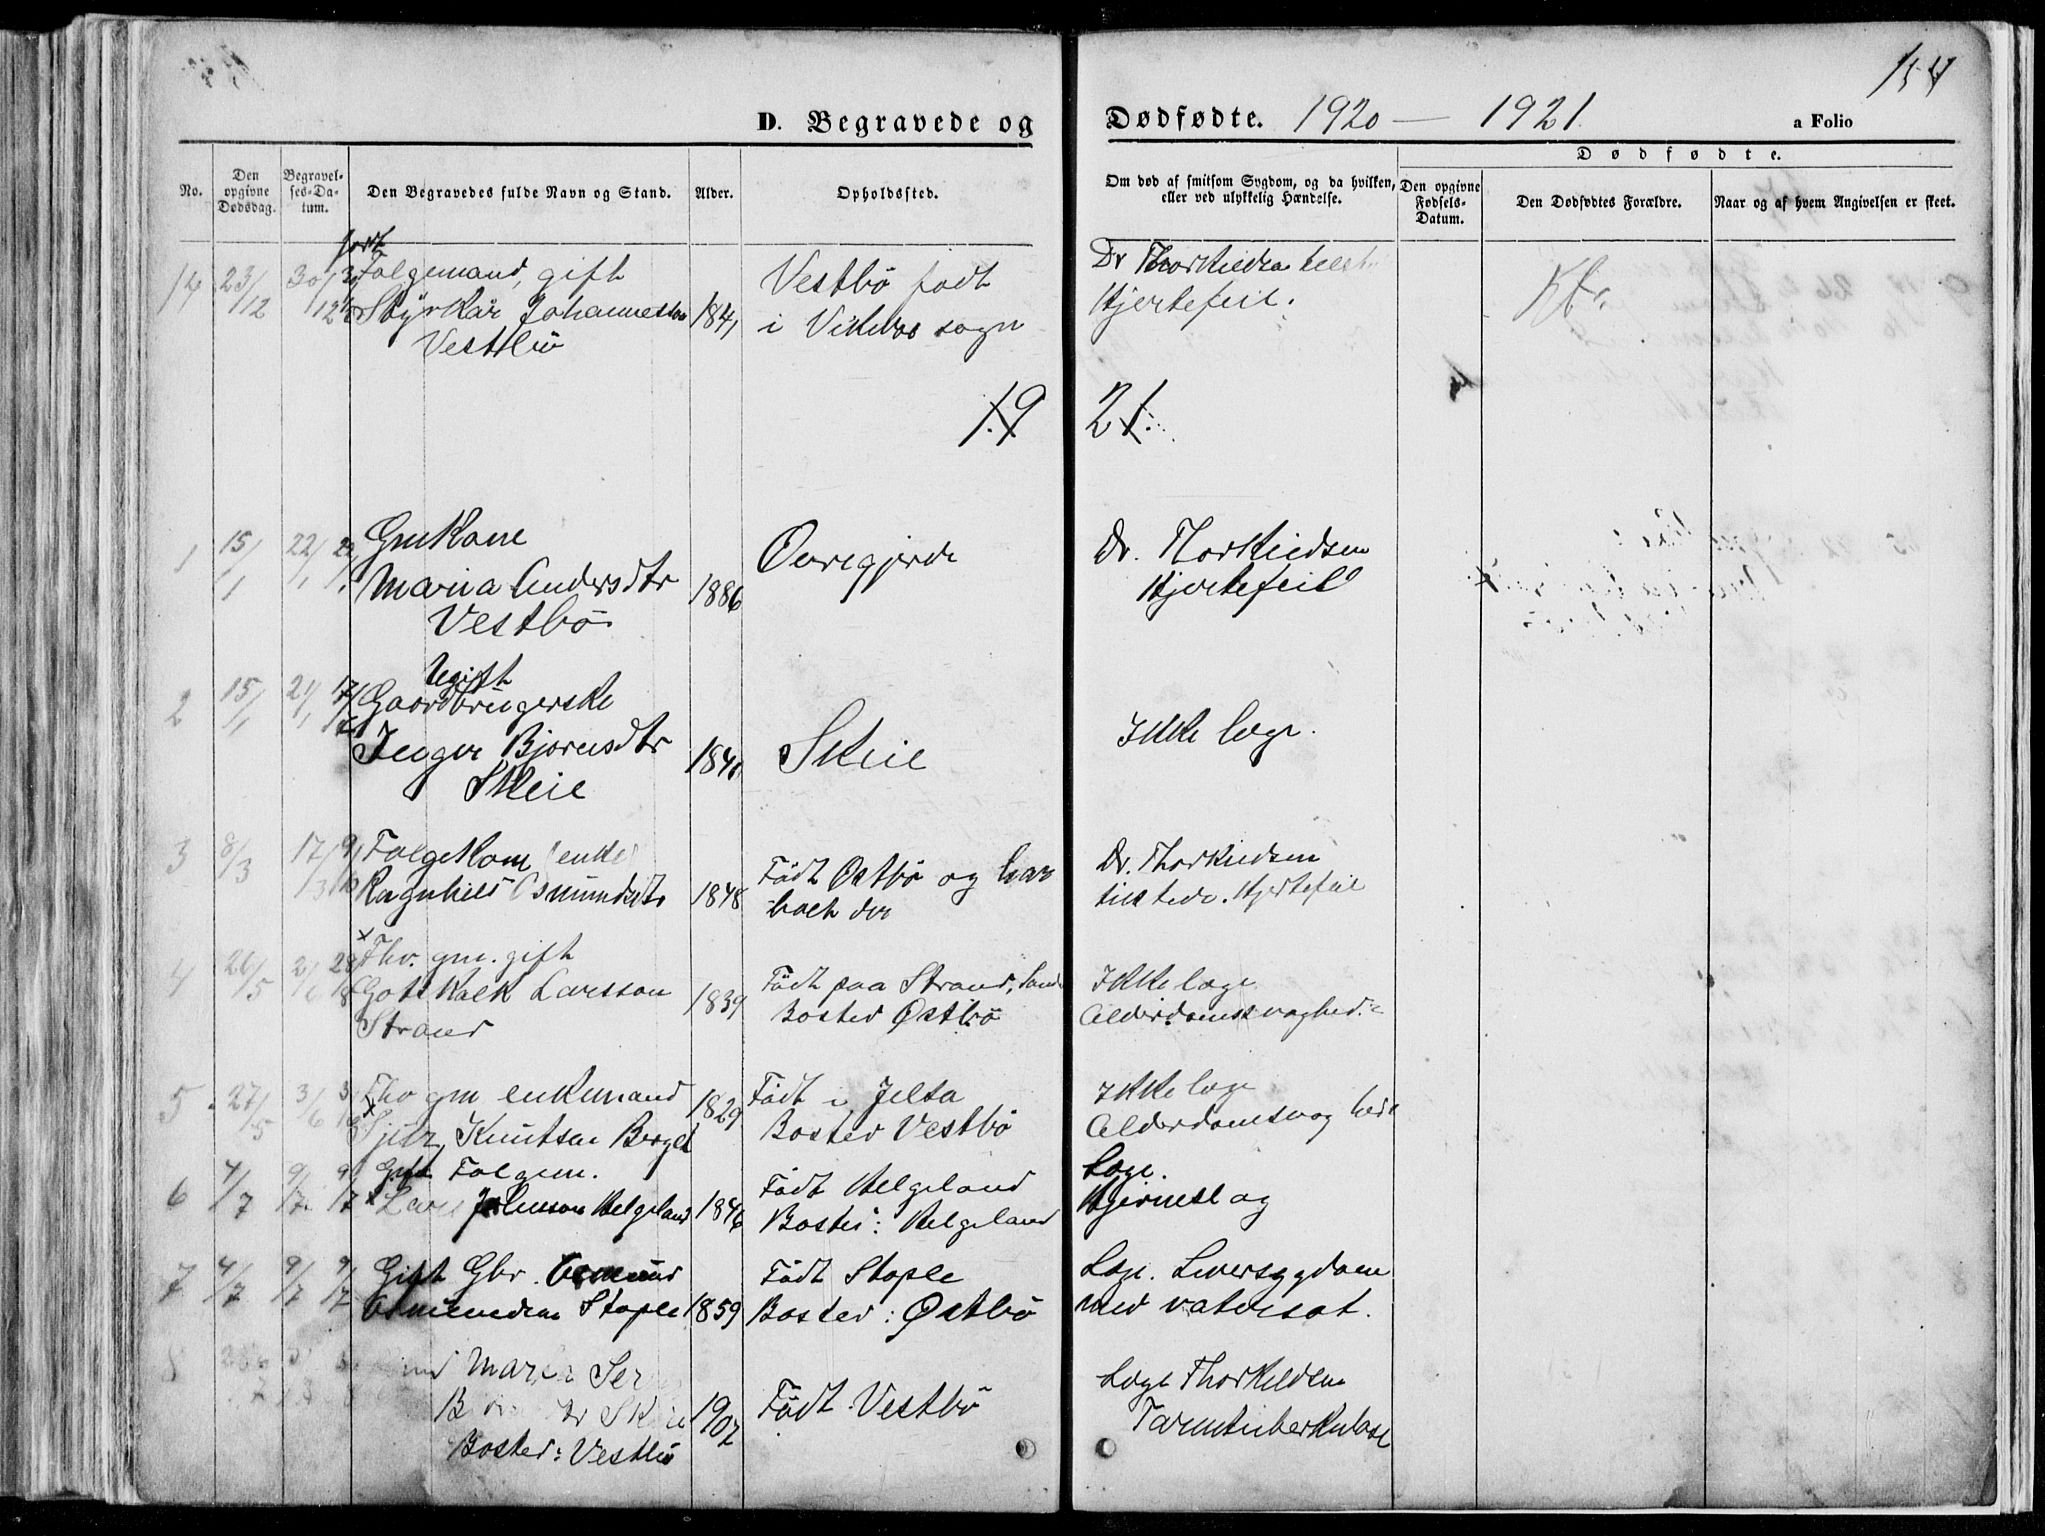 154
D. Begravede og Dødfødte. 1920 — 1921.
a Folio
No.
Den opgivne Dødsdag.
Begravelses-Datum.
Den Begravedes fulde Navn og Stand.
Alder.
Opholdssted.
Om død af smitsom Sygdom, og da hvilken, eller ved ulykkelig Hændelse.
Dødfødte.
Den opgivne Fødsels-Datum.
Den Dødfødtes Forældre.
Naar og af hvem Angivelsen er skeet.
14 23/12 30/12 Folgemand, gift
Styrkår Johannesson
Vestbö
1841
Vestbö födt
i Vikebø sogn
Dr Thorkildsen
Hjertefeil.
19 21.
1 15/1 22/1 Gmkone
Maria Andersdtr
Vestbö
1886
Øvregjerde
Dr. Thorkildsen
Hjertefeil
2 15/1 21/1 Ugift
Gaardbrugerske
Inger Bjornsdtr
Skeie
Skeie
Ikke læge.
3 8/3 17/3 Folgekone (enke)
Ragnhild Osmundsdtr
1848
Födt Østbö og har
boet der
Dr. Thorkildsen
tilstede. Hjertefeil
4 26/5 2/6 Fhv. gm. gift
Gotskalk Larsson
Strand
1839
Födt paa Strand,
Bosted Østbö
Ikke læge
Alderdomssvaghed.
5 27/5 3/6 Fhv gm enkemand
Knutsen Berge
1829
Födt i Jelsa
Bosted Vestbö
Ikke læge
Alderdomsvaghed
6 4/7 9/7 9/7 Gift Folgem.
Lars Helgeland
1846
Födt Helgeland
Bosted: Helgeland
Læge.
Hjerneslag
7 4/7 9/7 9/7 Gift Gbr. Osmund
Osmundsen Stople
1859
Födt Stople
Bosted: Østbö
Læge. Leversygdom
med vatersot.
8
Maria
Bosted: Vestbö
1907
Födt Vestbö
Læge Thorkildsen
Tarmtuberkulose